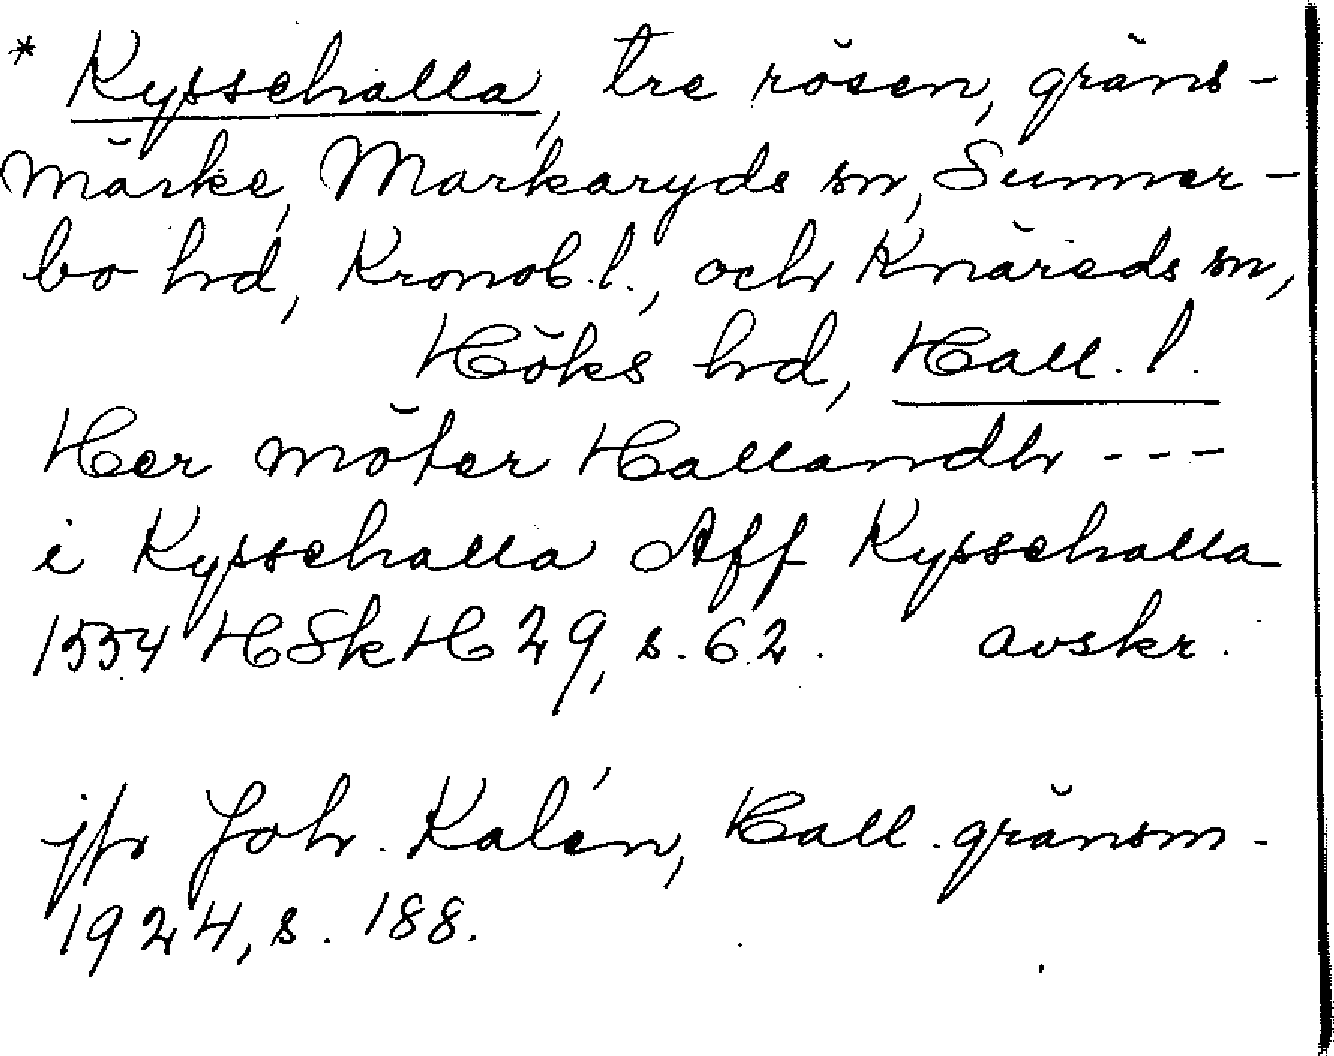 * Kyssehalla, tre rösen, gräns-
märke, Markaryds sn, Sunner-
bo hd, Kronob. l., och Knäreds sn,
Höks hd, Hall. l.
Her möter Hallandh ---
i Kyssehalla Aff Kyssehalla
1554 HSkH 29, s. 62. avskr.
jfr Joh. Kalén, Hall. gränsm.
1924, s. 188.